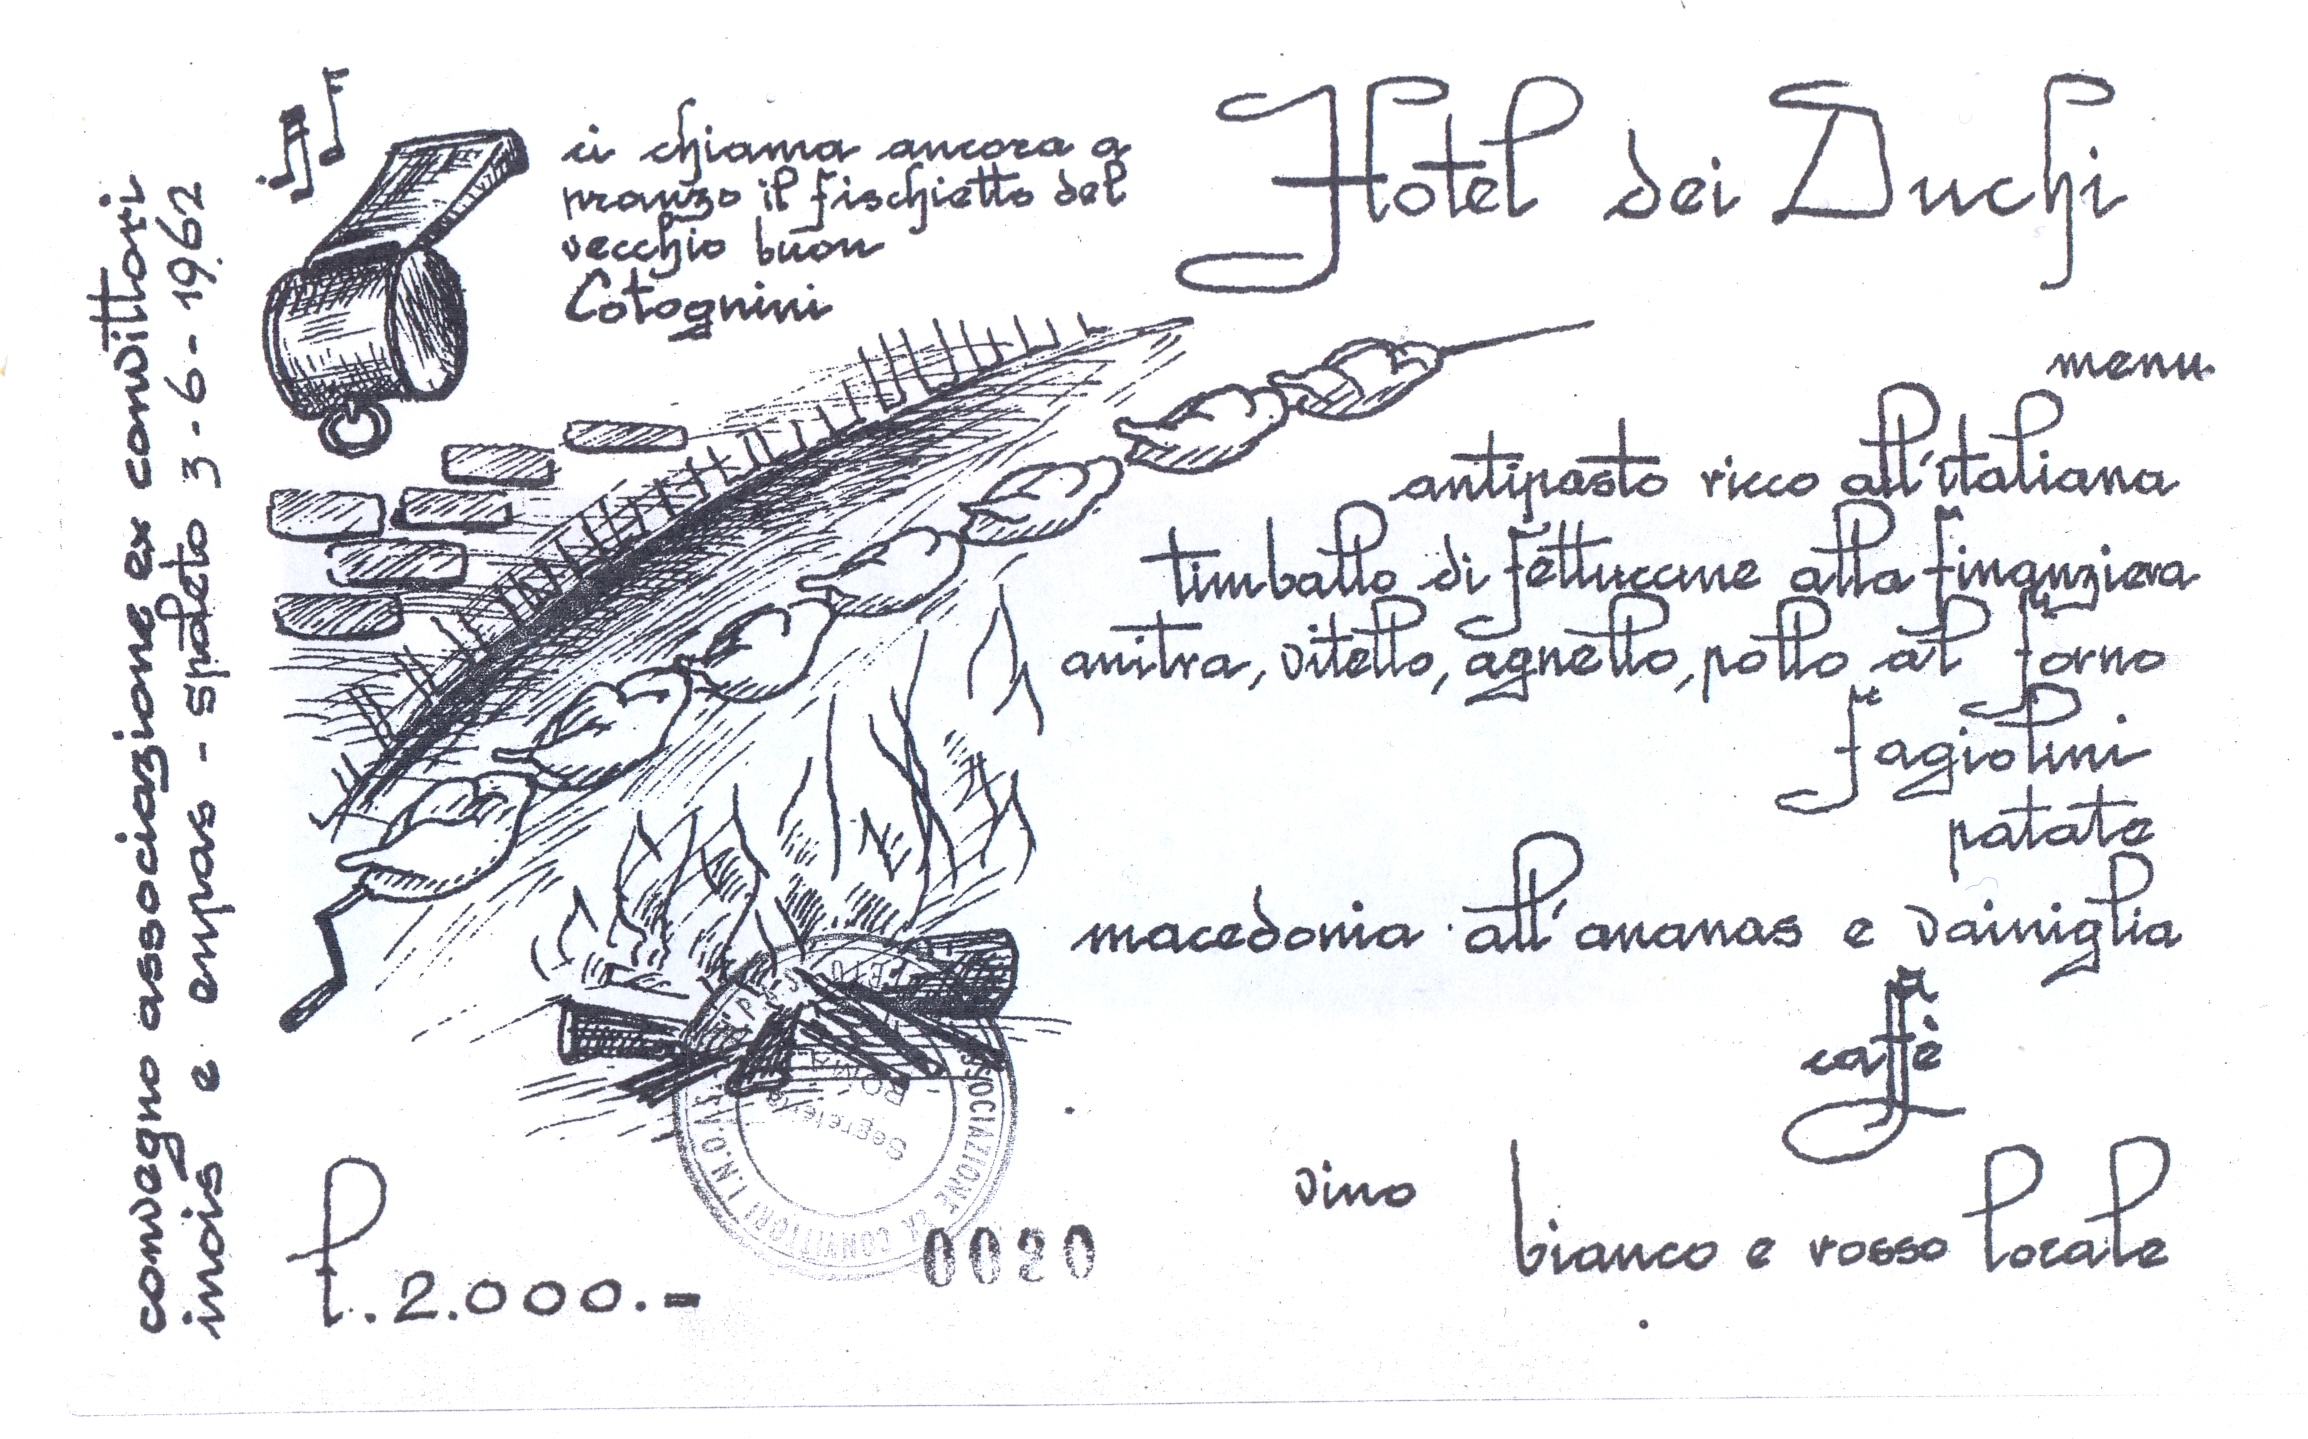 convegno associazione ex convittori
inois e enpas - spoleto 3-6-1962
ci chiama ancora a
pranzo il fischietto del
vecchio buon
Cotognini
Hotel dei Duchi
menu
antipasto ricco all'italiana
timballo di fettuccine alla finanziera
anitra, vitello, agnello, pollo al forno
fagiolini
patate
macedonia all'ananas e vainiglia
caffè
vino
bianco e rosso locale
£.2.000.-
0020
ASSOCIAZIONE EX CONVITTORI I.N.O.
Segreteria
ROMA